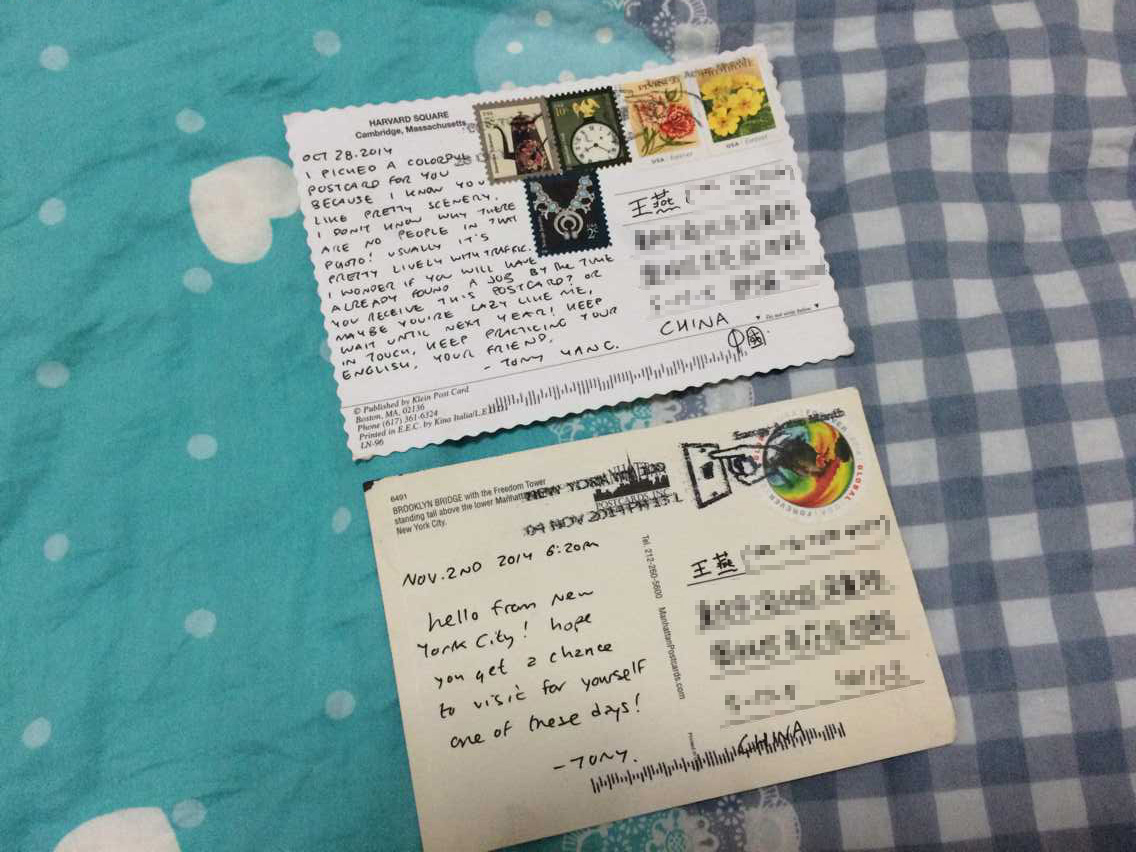 HARVARD SQUARE
Cambridge, Massachusetts
OCT 28.2014
I PICKED A COLORFUL
POSTCARD FOR YOU
BECAUSE I KNOW YOU
LIKE PRETTY SCENERY.
I DON'T KNOW WHY THERE
ARE NO PEOPLE IN THAT
PHOTO! USUALLY IT'S
PRETTY LIVELY WITH TRAFFIC.
I WONDER IF YOU WILL HAVE
ALREADY FOUND A JOB BY THE TIME
YOU RECEIVE THIS POSTCARD? OR
MAYBE YOU'RE LAZY LIKE ME,
WAIT UNTIL NEXT YEAR! KEEP
IN TOUCH, KEEP PRACTICING YOUR
ENGLISH, YOUR FRIEND,
- TONY YANG.
© Published by Klein Post Card
Boston, MA, 02136
Phone (617) 361-6324
Printed in E.E.C. by Kina Italia/L.E.G.O.
LN-96
10¢
2¢
USA Forever
USA Forever
王燕
CHINA
中國
Do not write below
6491
BROOKLYN BRIDGE with the Freedom Tower
standing tall above the lower Manhattan
New York City.
NEW YORK
POSTCARDS, INC.
04 NOV 2014 PM 15 L
GLOBAL FOREVER
NOV. 2ND 2014 6:20pm
hello from New
York City! hope
you get a chance
to visit for yourself
one of these days!
- TONY.
Tel. 212-260-5600 ManhattanPostcards.com
王燕
CHINA